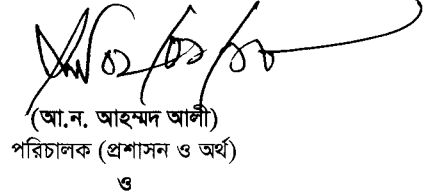 (আ.ন. আহম্মদ আলী)
পরিচালক (প্রশাসন ও অর্থ)
ও